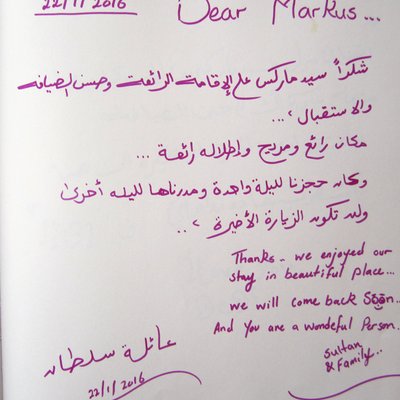 22/1/2016
Dear Markus...
شكراً سيد ماركس على الإقامة الرائعة وحسن الضيافة
والاستقبال ،...
مكان رائع ومريح وإطلاله رائعة ...
وكان حجزنا لليلة واحدة ومددناها لليله أخرى
ولن تكون الزيارة الأخيرة ،..
Thanks.. we enjoyed our
stay in beautiful place...
we will come back Soon..
And You are a wondeful Person..
Sultan
& Family..
عائلة سلطان
22/1/2016